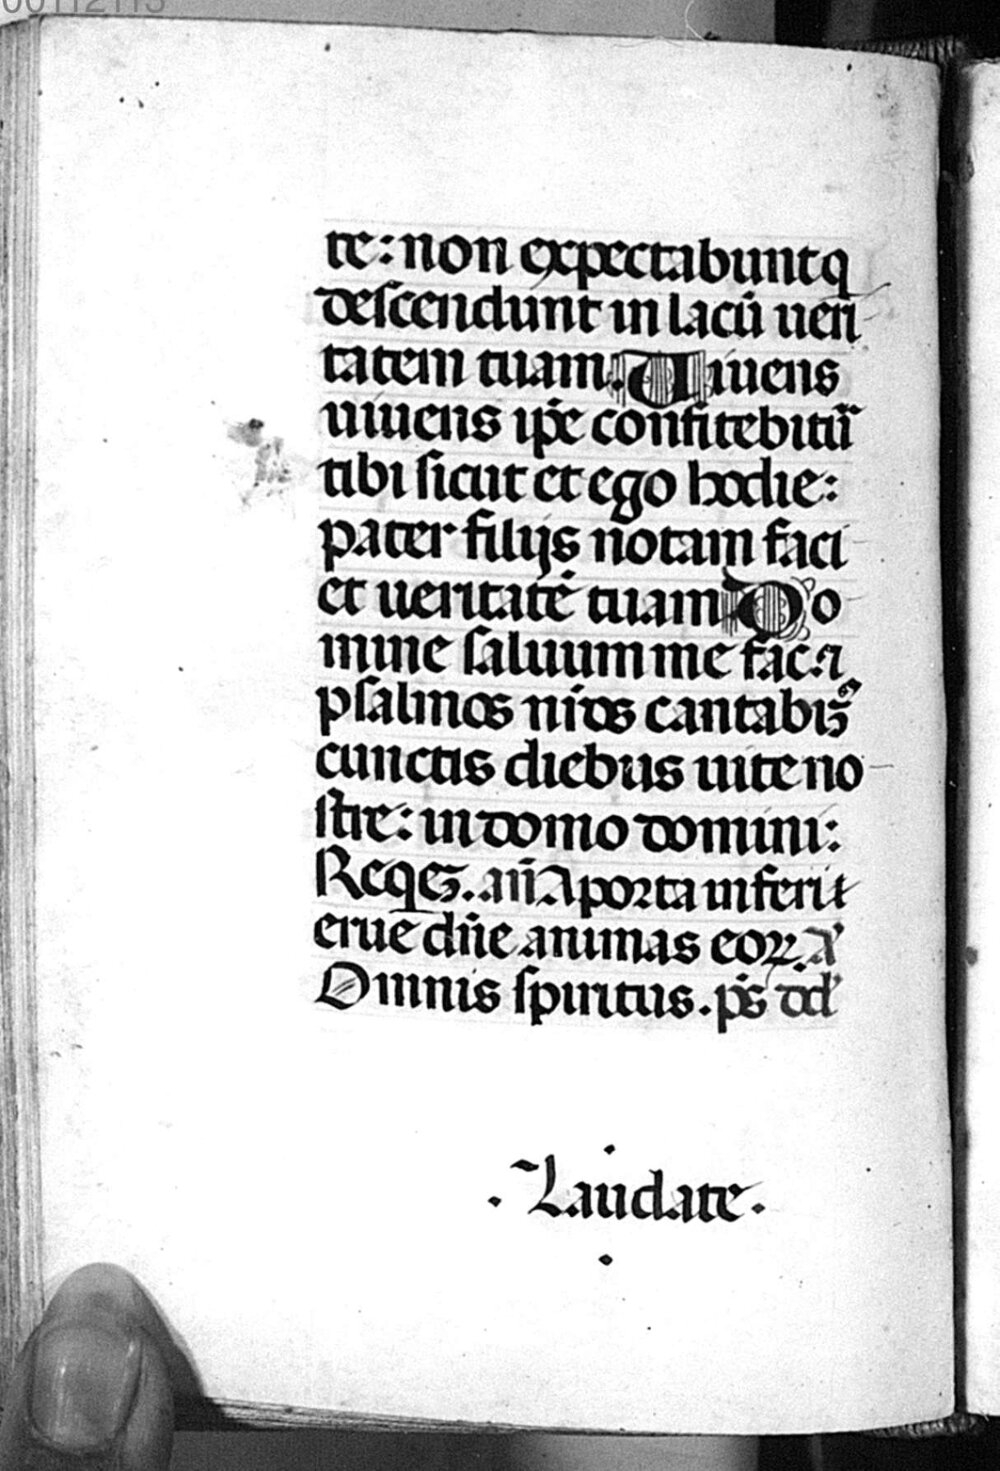 00112113
te: non expectabunt q
descendunt in lacū ueri
tatem tuam. Uiuens
uiuens ip̄e confitebitur̃
tibi sicut et ego hodie:
pater filijs notam faci
et ueritatē tuam Do
mine saluum me fac. ⁊
psalmos nr̄os cantabim᷒
cunctis diebus uite no
stre: in domo domini:
Reqe͂. an̄. A porta inferi
erue dn̄e animas eoꝝ. A᷒
Omnis spiritus. ps̄ dd̄
. Laudate.